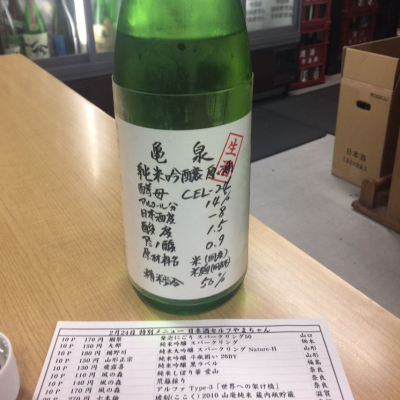 亀泉
生酒
純米吟醸原酒
酵母 CEL-24
アルコール分 14%
日本酒度 -8
酸度 1.5
アミノ酸 0.9
原材料名 米(国産)
米麹(国産米)
精米歩合 50%
日本酒
2月24日 特別メニュー 日本酒セルフやまちゃん
10P 170円 獺祭 発泡にごり スパークリング50 山口
10P 150円 大那 純米吟醸 スパークリング 栃木
10P 180円 楯野川 純米大吟醸 スパークリング Nature-H 山形
10P 130円 山形正宗 純米吟醸 斗瓶囲い 26BY 山形
10P 150円 飛露喜 純米吟醸 黒ラベル 福島
10P 110円 風の森 純米しぼり華 愛山 奈良
10P 110円 風の森 笊籬採り 奈良
10P 170円 風の森 アルファ Type-3「世界への架け橋」 奈良
2010 山廃純米 蔵内瓶貯蔵 滋賀